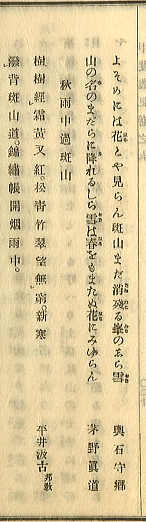 よそめには花とや見らん斑山まだ消殘る峯のゑら雪　奥石守郷
山の名のまだらに降れるしら雲は春をもまたぬ花にみゆらん　茅野眞道
秋雨中過斑山
樹樹經霜黃又紅。松靑竹翠望無窮。新寒
潑背斑山道。錦繡帳開烟雨中。　平井汲古邦敎